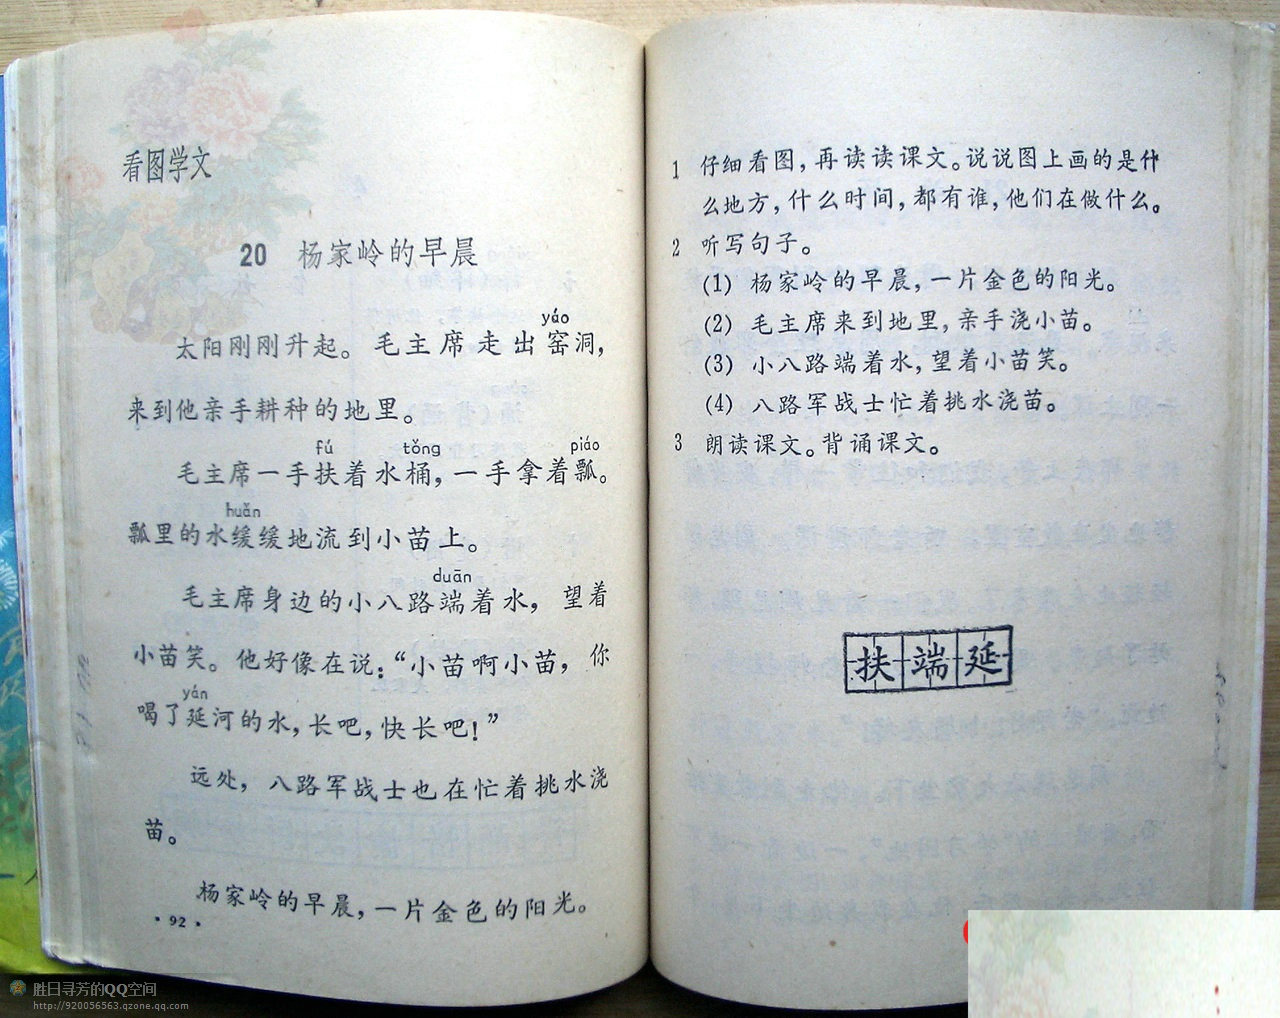 看图学文
20 杨家岭的早晨
yáo
太阳刚刚升起。毛主席走出窑洞，
来到他亲手耕种的地里。
fú tǒng piáo
毛主席一手扶着水桶，一手拿着瓢。
huǎn
瓢里的水缓缓地流到小苗上。
duān
毛主席身边的小八路端着水，望着
小苗笑。他好像在说：“小苗啊小苗，你
yán
喝了延河的水，长吧，快长吧！”
远处，八路军战士也在忙着挑水浇
苗。
杨家岭的早晨，一片金色的阳光。
·92·
1 仔细看图，再读读课文。说说图上画的是什
么地方，什么时间，都有谁，他们在做什么。
2 听写句子。
(1) 杨家岭的早晨，一片金色的阳光。
(2) 毛主席来到地里，亲手浇小苗。
(3) 小八路端着水，望着小苗笑。
(4) 八路军战士忙着挑水浇苗。
3 朗读课文。背诵课文。
扶端延
胜日寻芳的QQ空间
http://920056563.qzone.qq.com